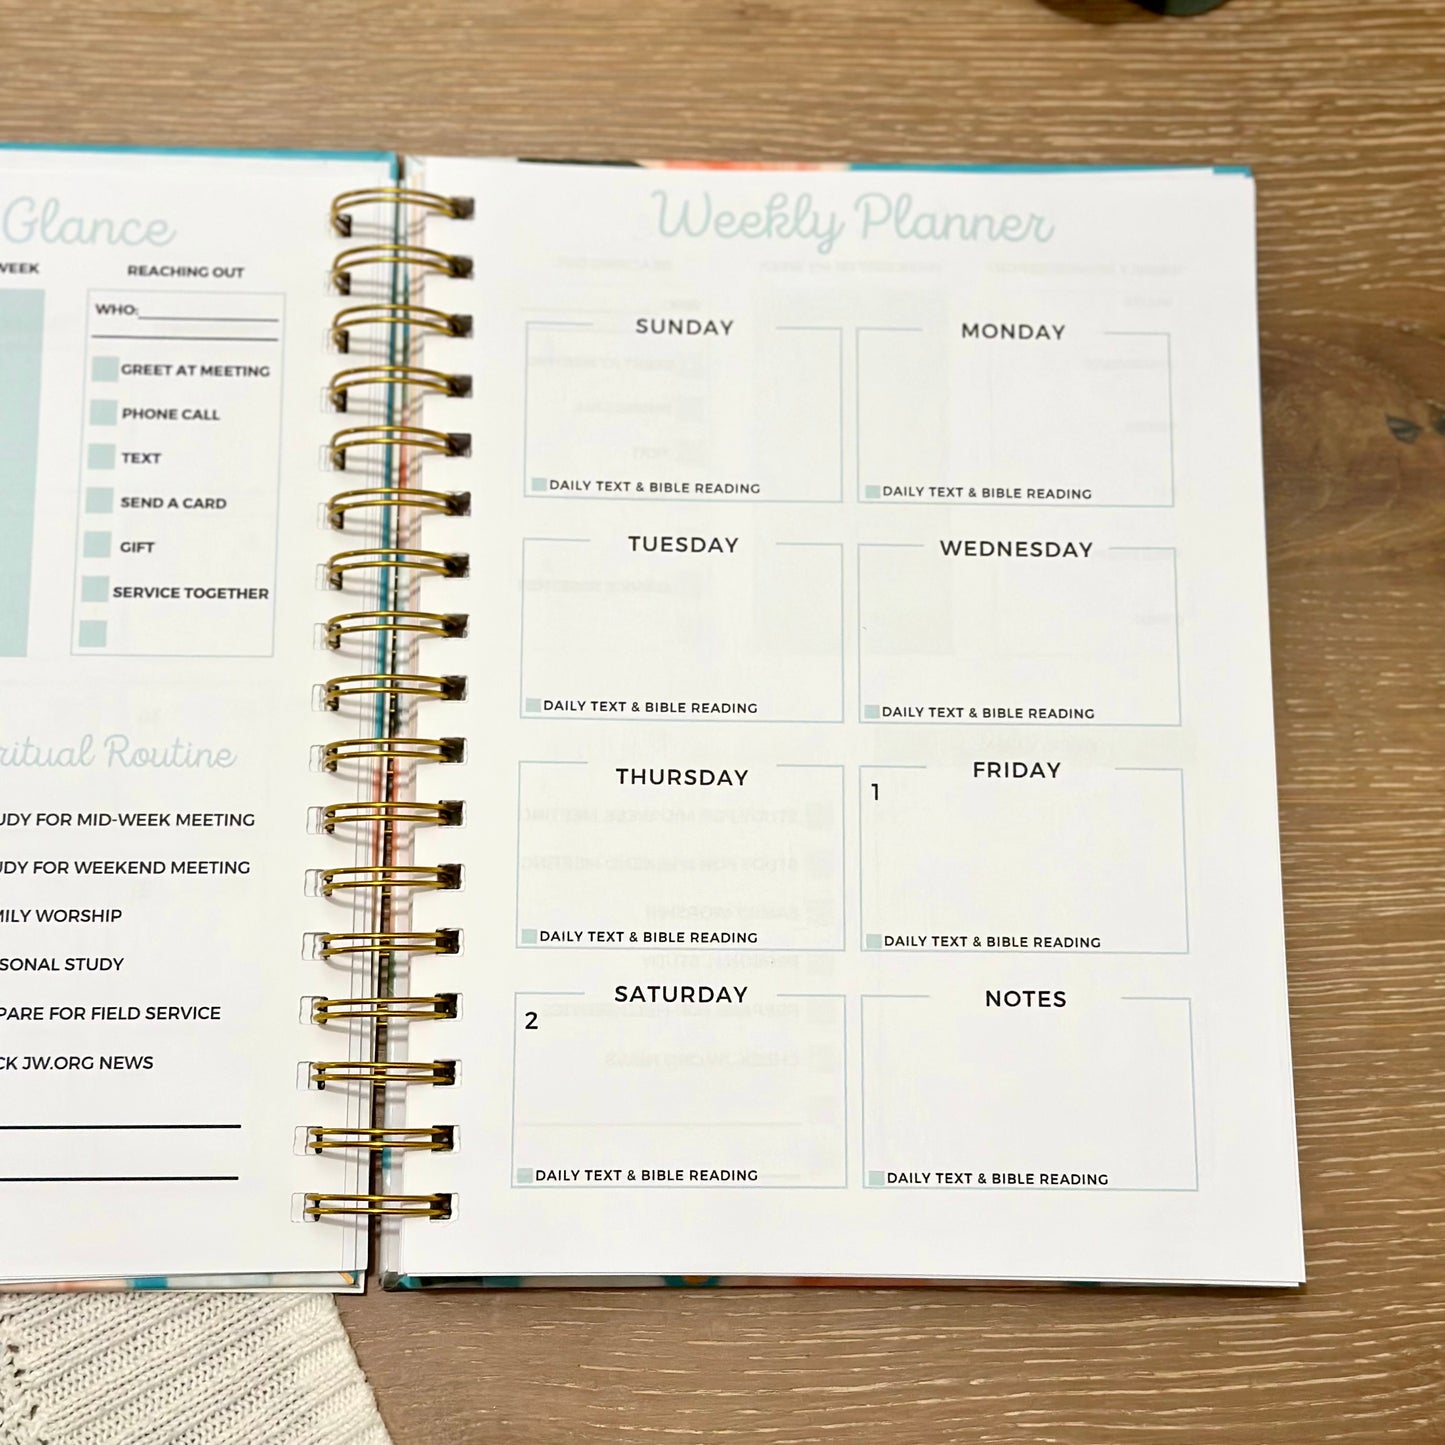 Glance
WEEK
REACHING OUT
WHO:
GREET AT MEETING
PHONE CALL
TEXT
SEND A CARD
GIFT
SERVICE TOGETHER
Routine
FOR MID-WEEK MEETING
FOR WEEKEND MEETING
WORSHIP
STUDY
FOR FIELD SERVICE
JW.ORG NEWS
Weekly Planner
SUNDAY
DAILY TEXT & BIBLE READING
MONDAY
DAILY TEXT & BIBLE READING
TUESDAY
DAILY TEXT & BIBLE READING
WEDNESDAY
DAILY TEXT & BIBLE READING
THURSDAY
DAILY TEXT & BIBLE READING
FRIDAY
1
DAILY TEXT & BIBLE READING
SATURDAY
2
DAILY TEXT & BIBLE READING
NOTES
DAILY TEXT & BIBLE READING